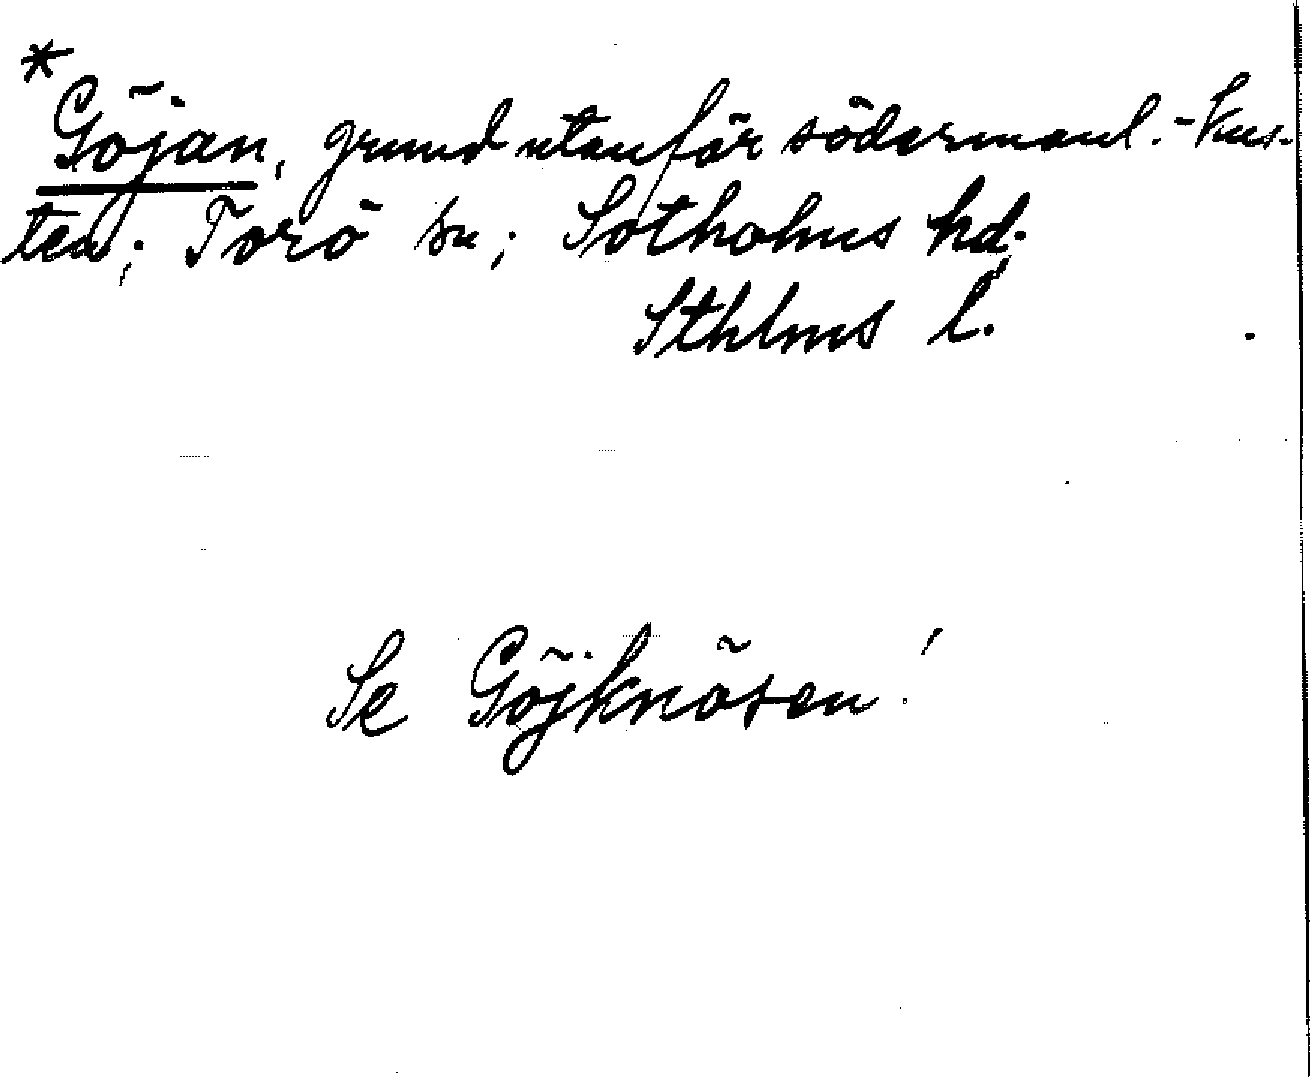 *
Göjan, grund utanför södermanl.-kus-
ten; Torö sn; Sotholms hd.
Sthlms l.
Se Göjknösen!